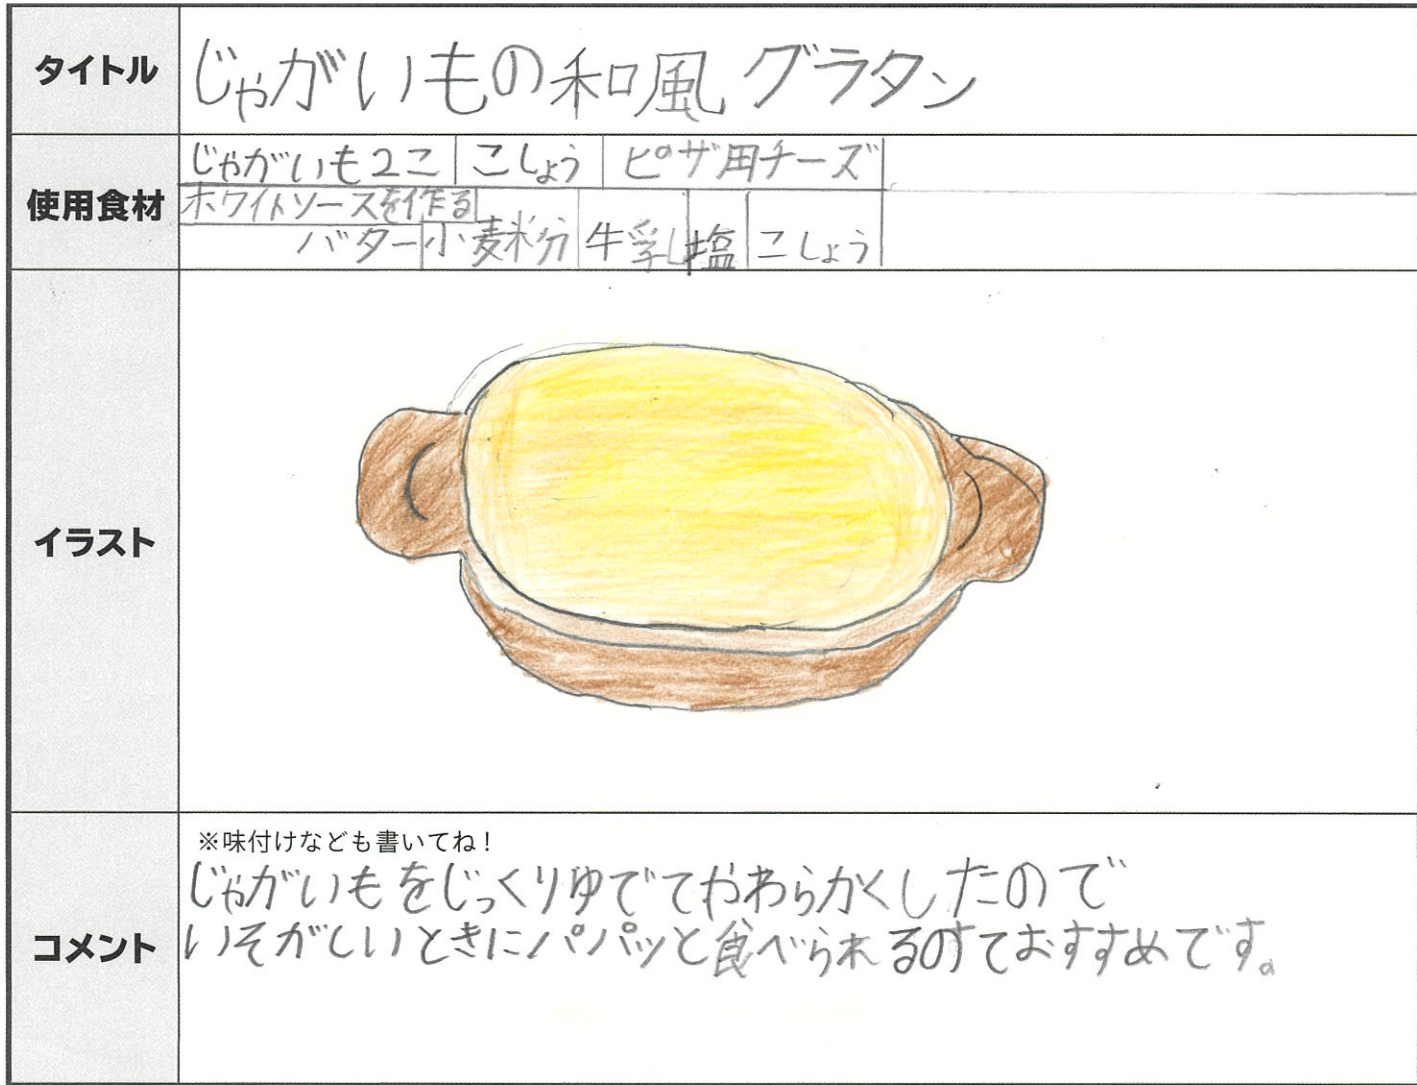 タイトル
じゃがいもの和風グラタン
使用食材
じゃがいも2こ こしょう ピザ用チーズ
ホワイトソースを作る
バター 小麦粉 牛乳 塩 こしょう
イラスト
コメント
※味付けなども書いてね!
じゃがいもをじっくりゆでてやわらかくしたので
いそがしいときにパパッと食べられるのでおすすめです。